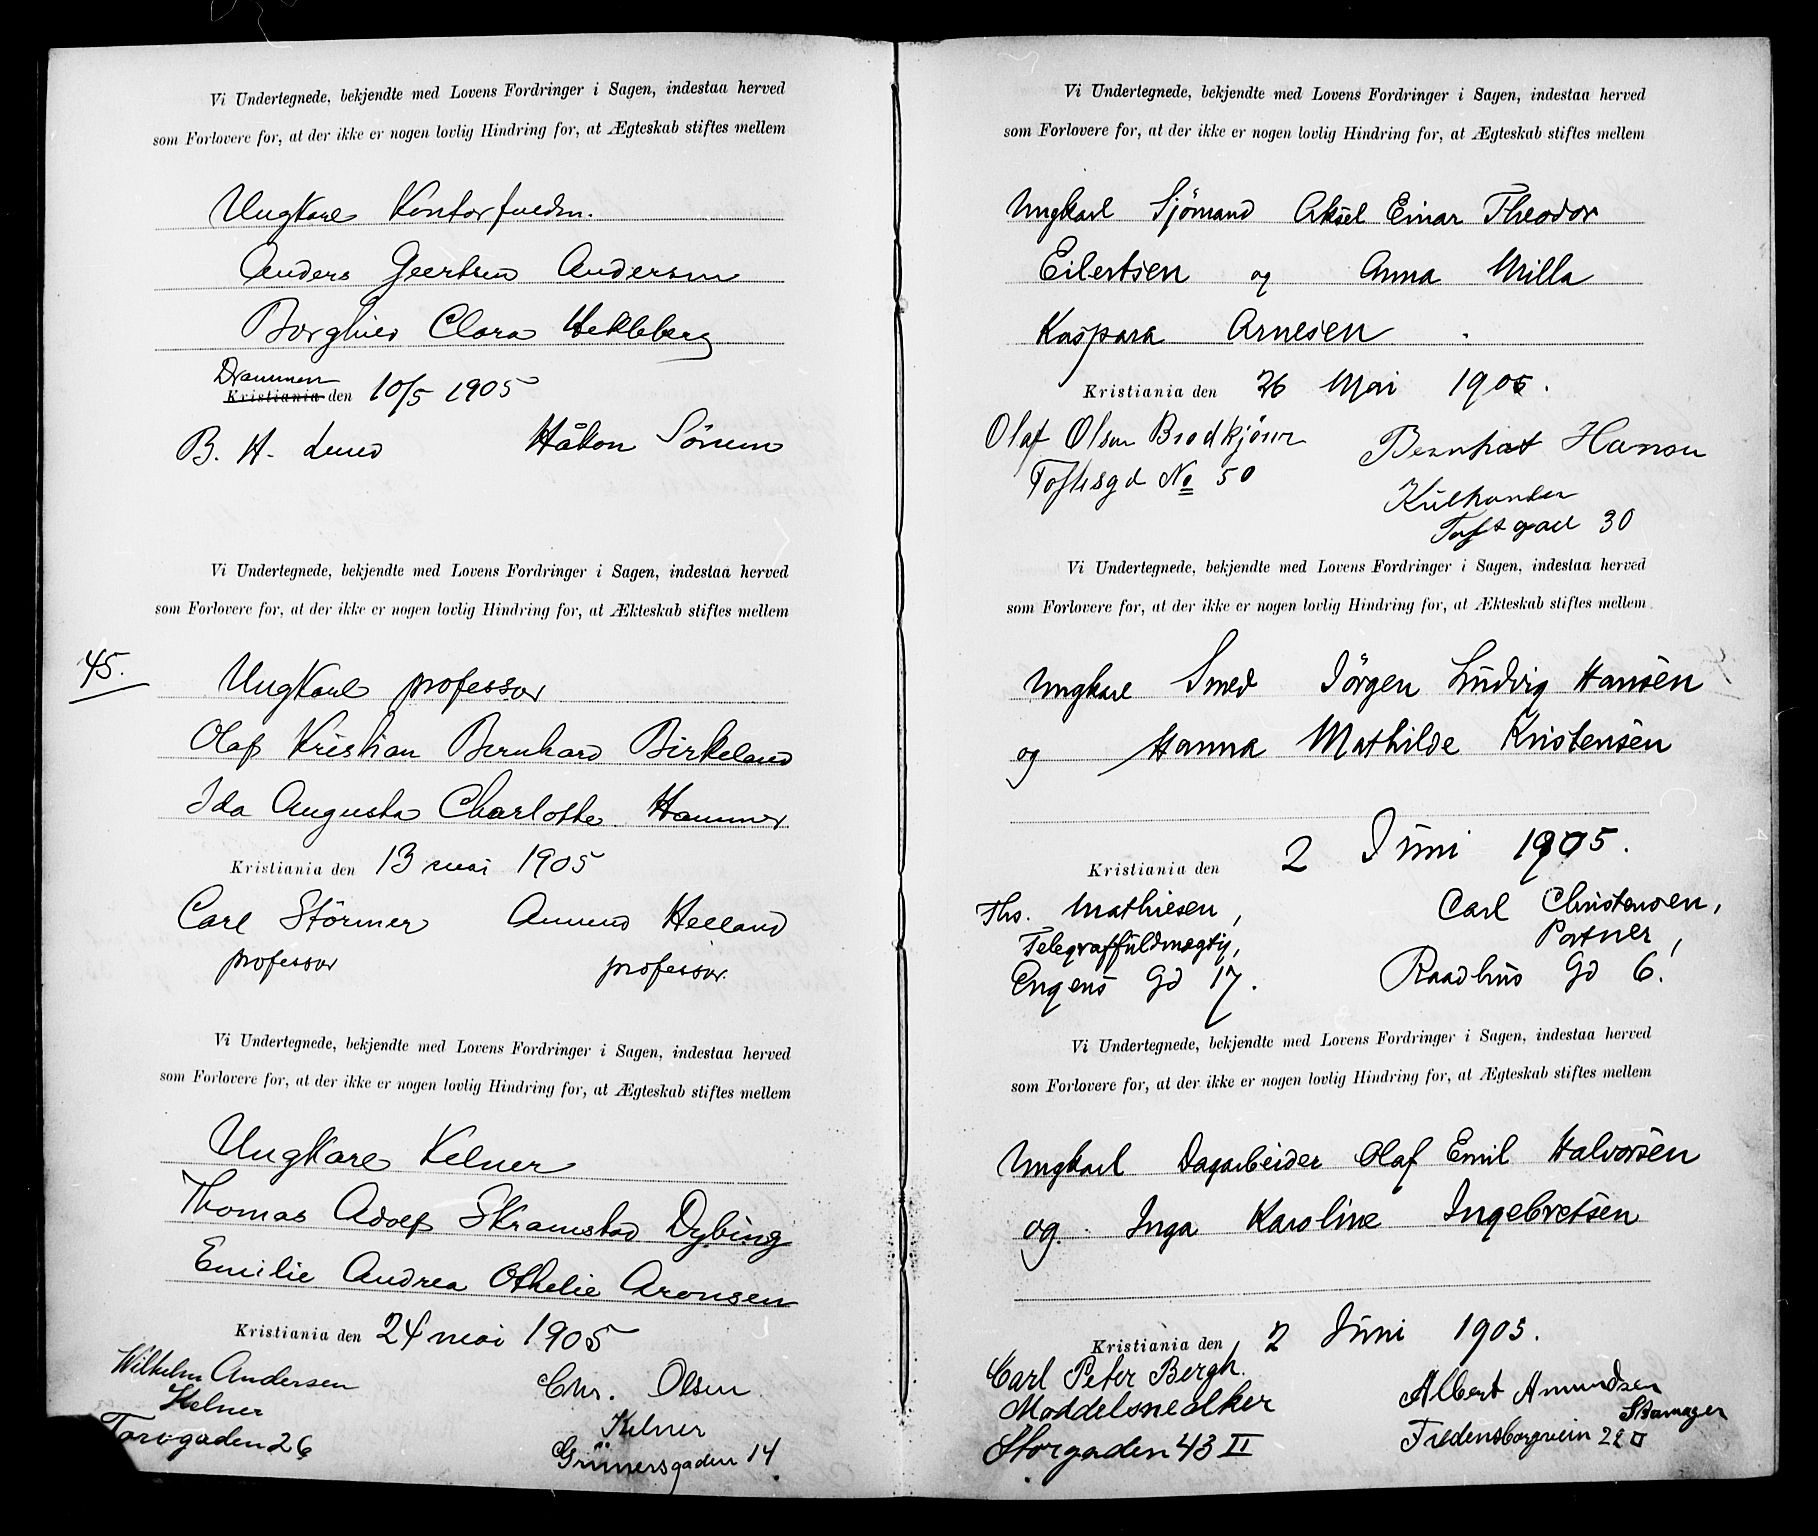 Vi Undertegnede, bekjendte med Lovens Fordringer i Sagen, indestaa herved
som Forlovere for, at der ikke er nogen lovlig Hindring for, at Ægteskab stiftes mellem
Ungkarl Kontorfuldm.
Anders Geertsen Andersen
Borghild Clara Hekleberg
Drammen
Kristiania den 10/5 1905
B. H. Lund Håkon Sörum
Vi Undertegnede, bekjendte med Lovens Fordringer i Sagen, indestaa herved
som Forlovere for, at der ikke er nogen lovlig Hindring for, at Ækteskab stiftes mellem
45.
Ungkarl professor
Olaf Kristian Bernhard Birkeland
Ida Augusta Charlotte Hammer
Kristiania den 13 mai 1905
Carl Störmer Amund Helland
professor professor.
Vi Undertegnede, bekjendte med Lovens Fordringer i Sagen, indestaa herved
som Forlovere for, at der ikke er nogen lovlig Hindring for, at Ægteskab stiftes mellem
Ungkarl Kelner
Thomas Adolf Skramstad Dybing
Emilie Andrea Othelie Aronsen
Kristiania den 24 mai 1905
Wilhelm Andersen Chr. Olsen
Kelner Kelner
Torvgaden 26 Grünersgaden 14
Vi Undertegnede, bekjendte med Lovens Fordringer i Sagen, indestaa herved
som Forlovere for, at der ikke er nogen lovlig Hindring for, at Ægteskab stiftes mellem
Ungkarl Sjömand Aksel Einar Theodor
Eilertsen og Anna Milla
Kaspara Arnesen.
Kristiania den 26 Mai 1905.
Olaf Olsen Bernhat Hanson
Toftesgd No 50 Kulhandler
Toftsgad 30
Vi Undertegnede, bekjendte med Lovens Fordringer i Sagen, indestaa herved
som Forlovere for, at der ikke er nogen lovlig Hindring for, at Ækteskab stiftes mellem
Ungkarl Smed Jörgen Ludvig Hansen
og Hanna Mathilde Kristensen
Kristiania den 2 Juni 1905.
Ths. Mathiesen, Carl Christensen,
Telegraffuldmægtig, Portner,
Engens Gd 17. Raadhus Gd 6!
Vi Undertegnede, bekjendte med Lovens Fordringer i Sagen, indestaa herved
som Forlovere for, at der ikke er nogen lovlig Hindring for, at Ægteskab stiftes mellem
Ungkarl Dagarbeider Olaf Emil Halvorsen
og Inga Karoline Ingebretsen
Kristiania den 2 Juni 1905.
Carl Peter Bergh. Albert Amundsen
Moddelsnedker Skomager
Storgaden 43 II Fredensborgveien 22